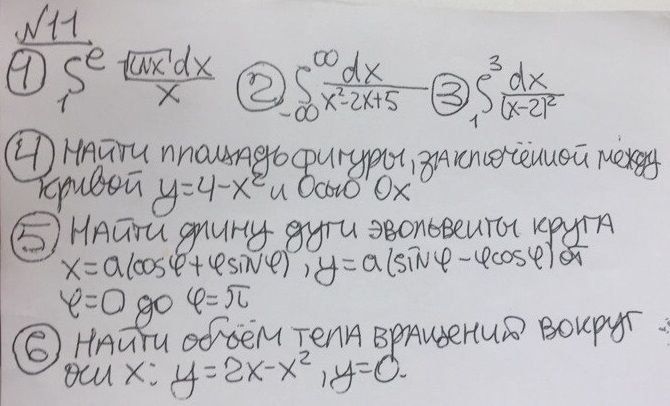 N11
1) ∫₁ᵉ √(lnx) dx / x 2) ∫₋∞^∞ dx / (x²-2x+5) 3) ∫₁³ dx / (x-2)²
4) Найти площадь фигуры, заключённой между
кривой y=4-x² и осью Ox
5) Найти длину дуги эвольвенты круга
x=a(cosφ+φsinφ), y=a(sinφ-φcosφ) от
φ=0 до φ=π
6) Найти объём тела вращения вокруг
оси x: y=2x-x², y=0.